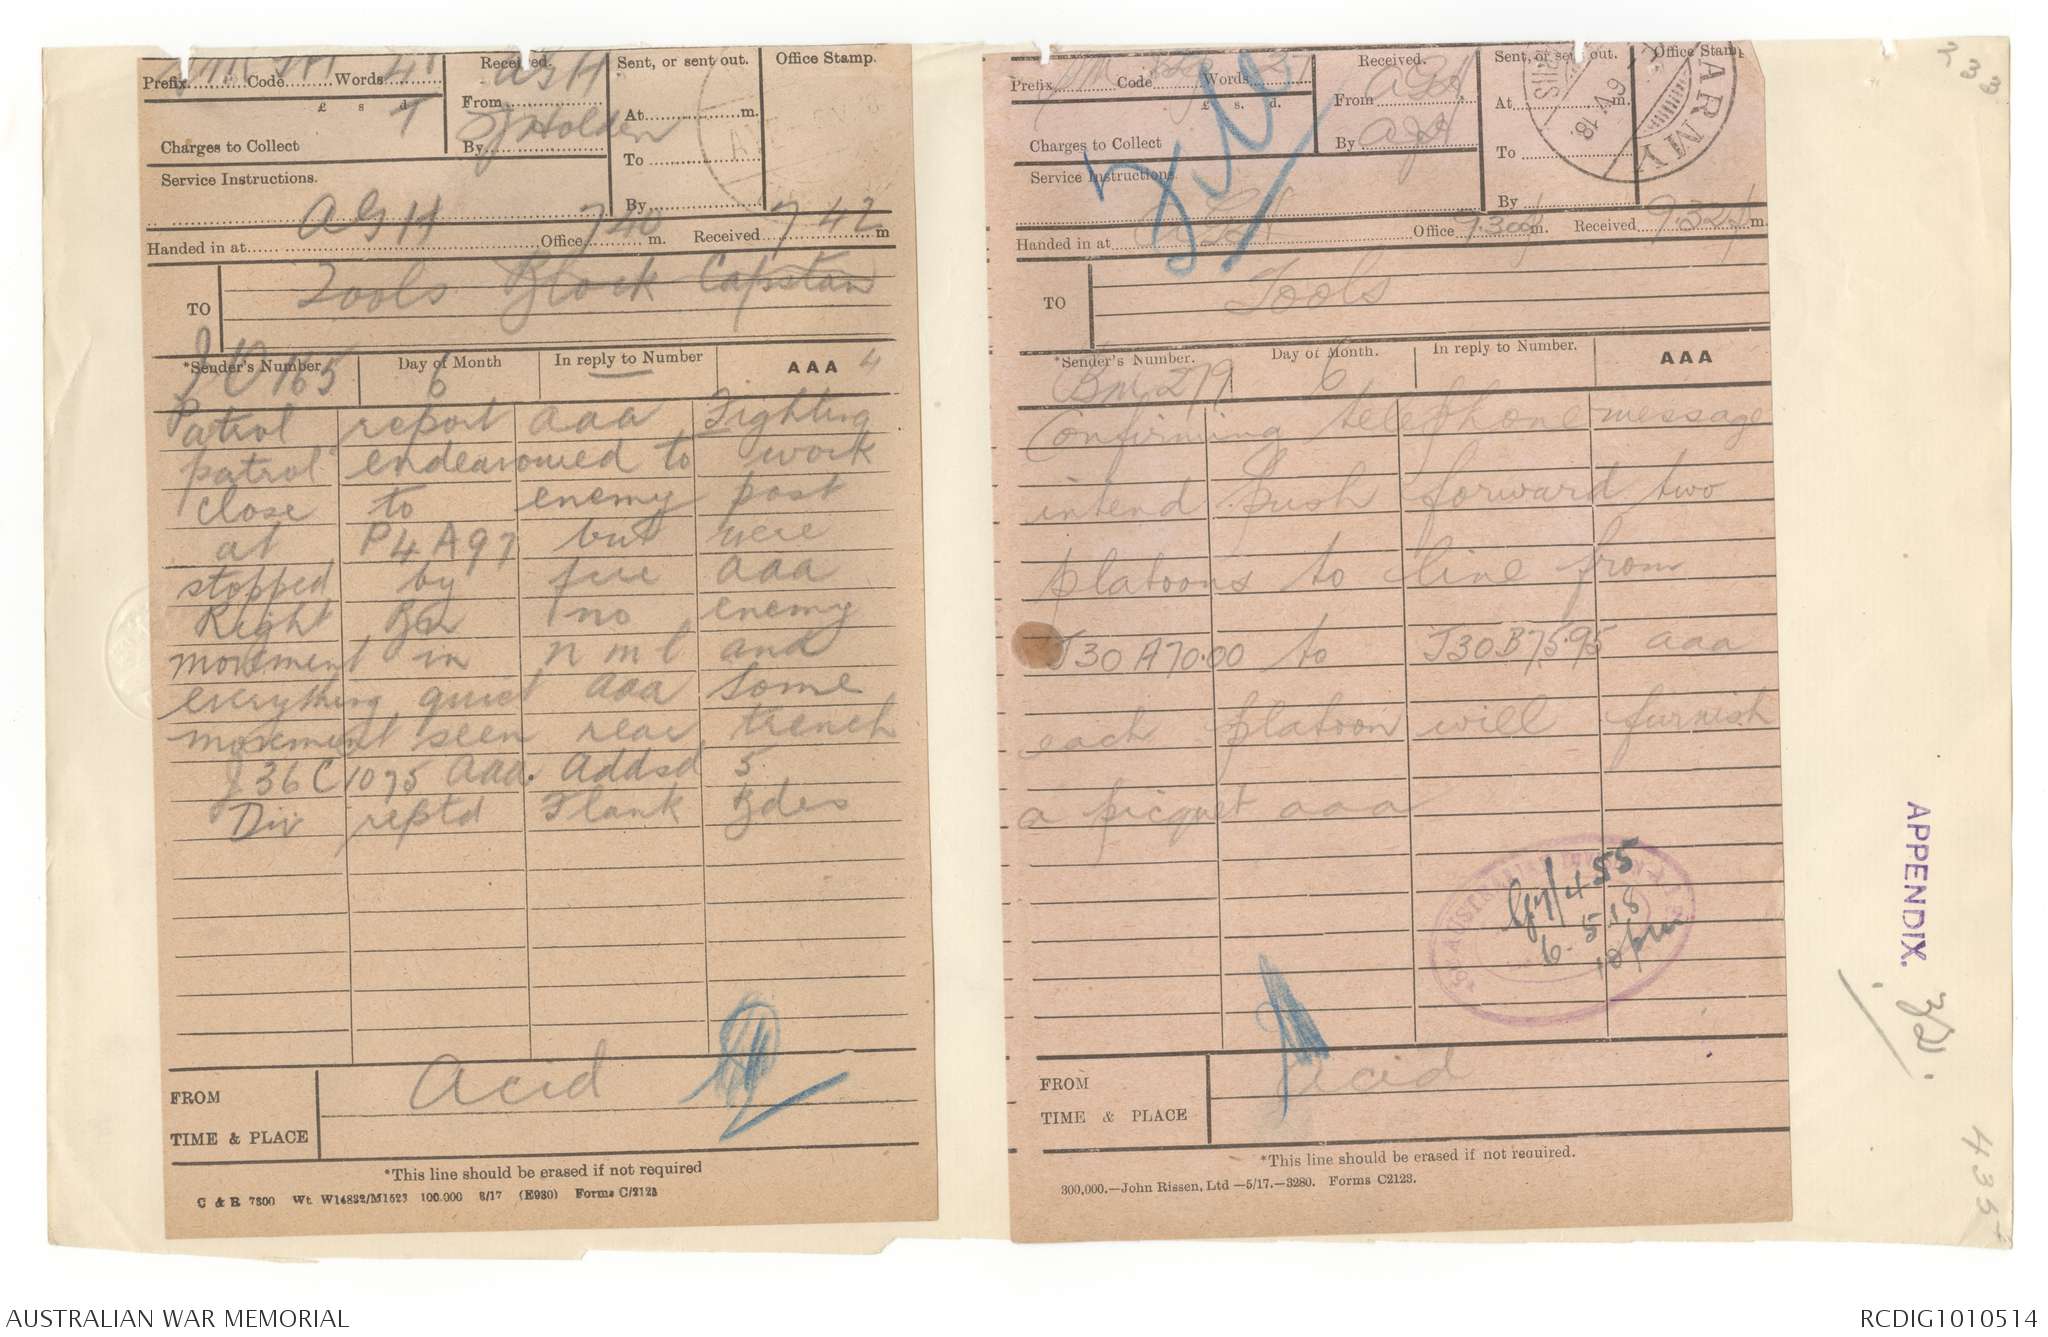 Prefix Code Words 48
Received.
Sent, or sent out.
Office Stamp.
£ s d.
AGH
From
At m.
Charges to Collect
By SJ Holden
To
Service Instructions.
By
Handed in at AGH Office 740 m. Received 7 42 m
TO Tools Block Capstan
*Sender's Number Day of Month In reply to Number AAA 4
JO 165 6
Patrol report aaa Fighting
patrol endeavoured to work
close to enemy post
at P4A97 but were
stopped by fire aaa
Right Bn no enemy
movement in n m l and
everything quiet aaa Some
movement seen rear trench
J36C1075 aaa. Addsd 5
Div reptd Flank Bdes
FROM Acid
TIME & PLACE
*This line should be erased if not required
C & R 7800 Wt. W14832/M1523 100.000 8/17 (E930) Forms C/2123
Prefix Code Words
Received.
Sent, or sent out.
Office Stamp
£ s. d.
From AGH
At m.
Charges to Collect
By
To
Service Instructions.
By
ARMY
6 V 18
Handed in at Office 9.30 m. Received 9.32 m.
TO Tools
*Sender's Number. Day of Month. In reply to Number. AAA
BM 279 6
Confirming telephone message
intend push forward two
platoons to line from
J30A70.00 to J30B75.95 aaa
each platoon will furnish
a picquet aaa
6. 5. 18
10 pm
FROM Acid
TIME & PLACE
*This line should be erased if not required.
300,000.—John Rissen, Ltd —5/17.—3280. Forms C2123.
233
APPENDIX.
32.
435
AUSTRALIAN WAR MEMORIAL
RCDIG1010514